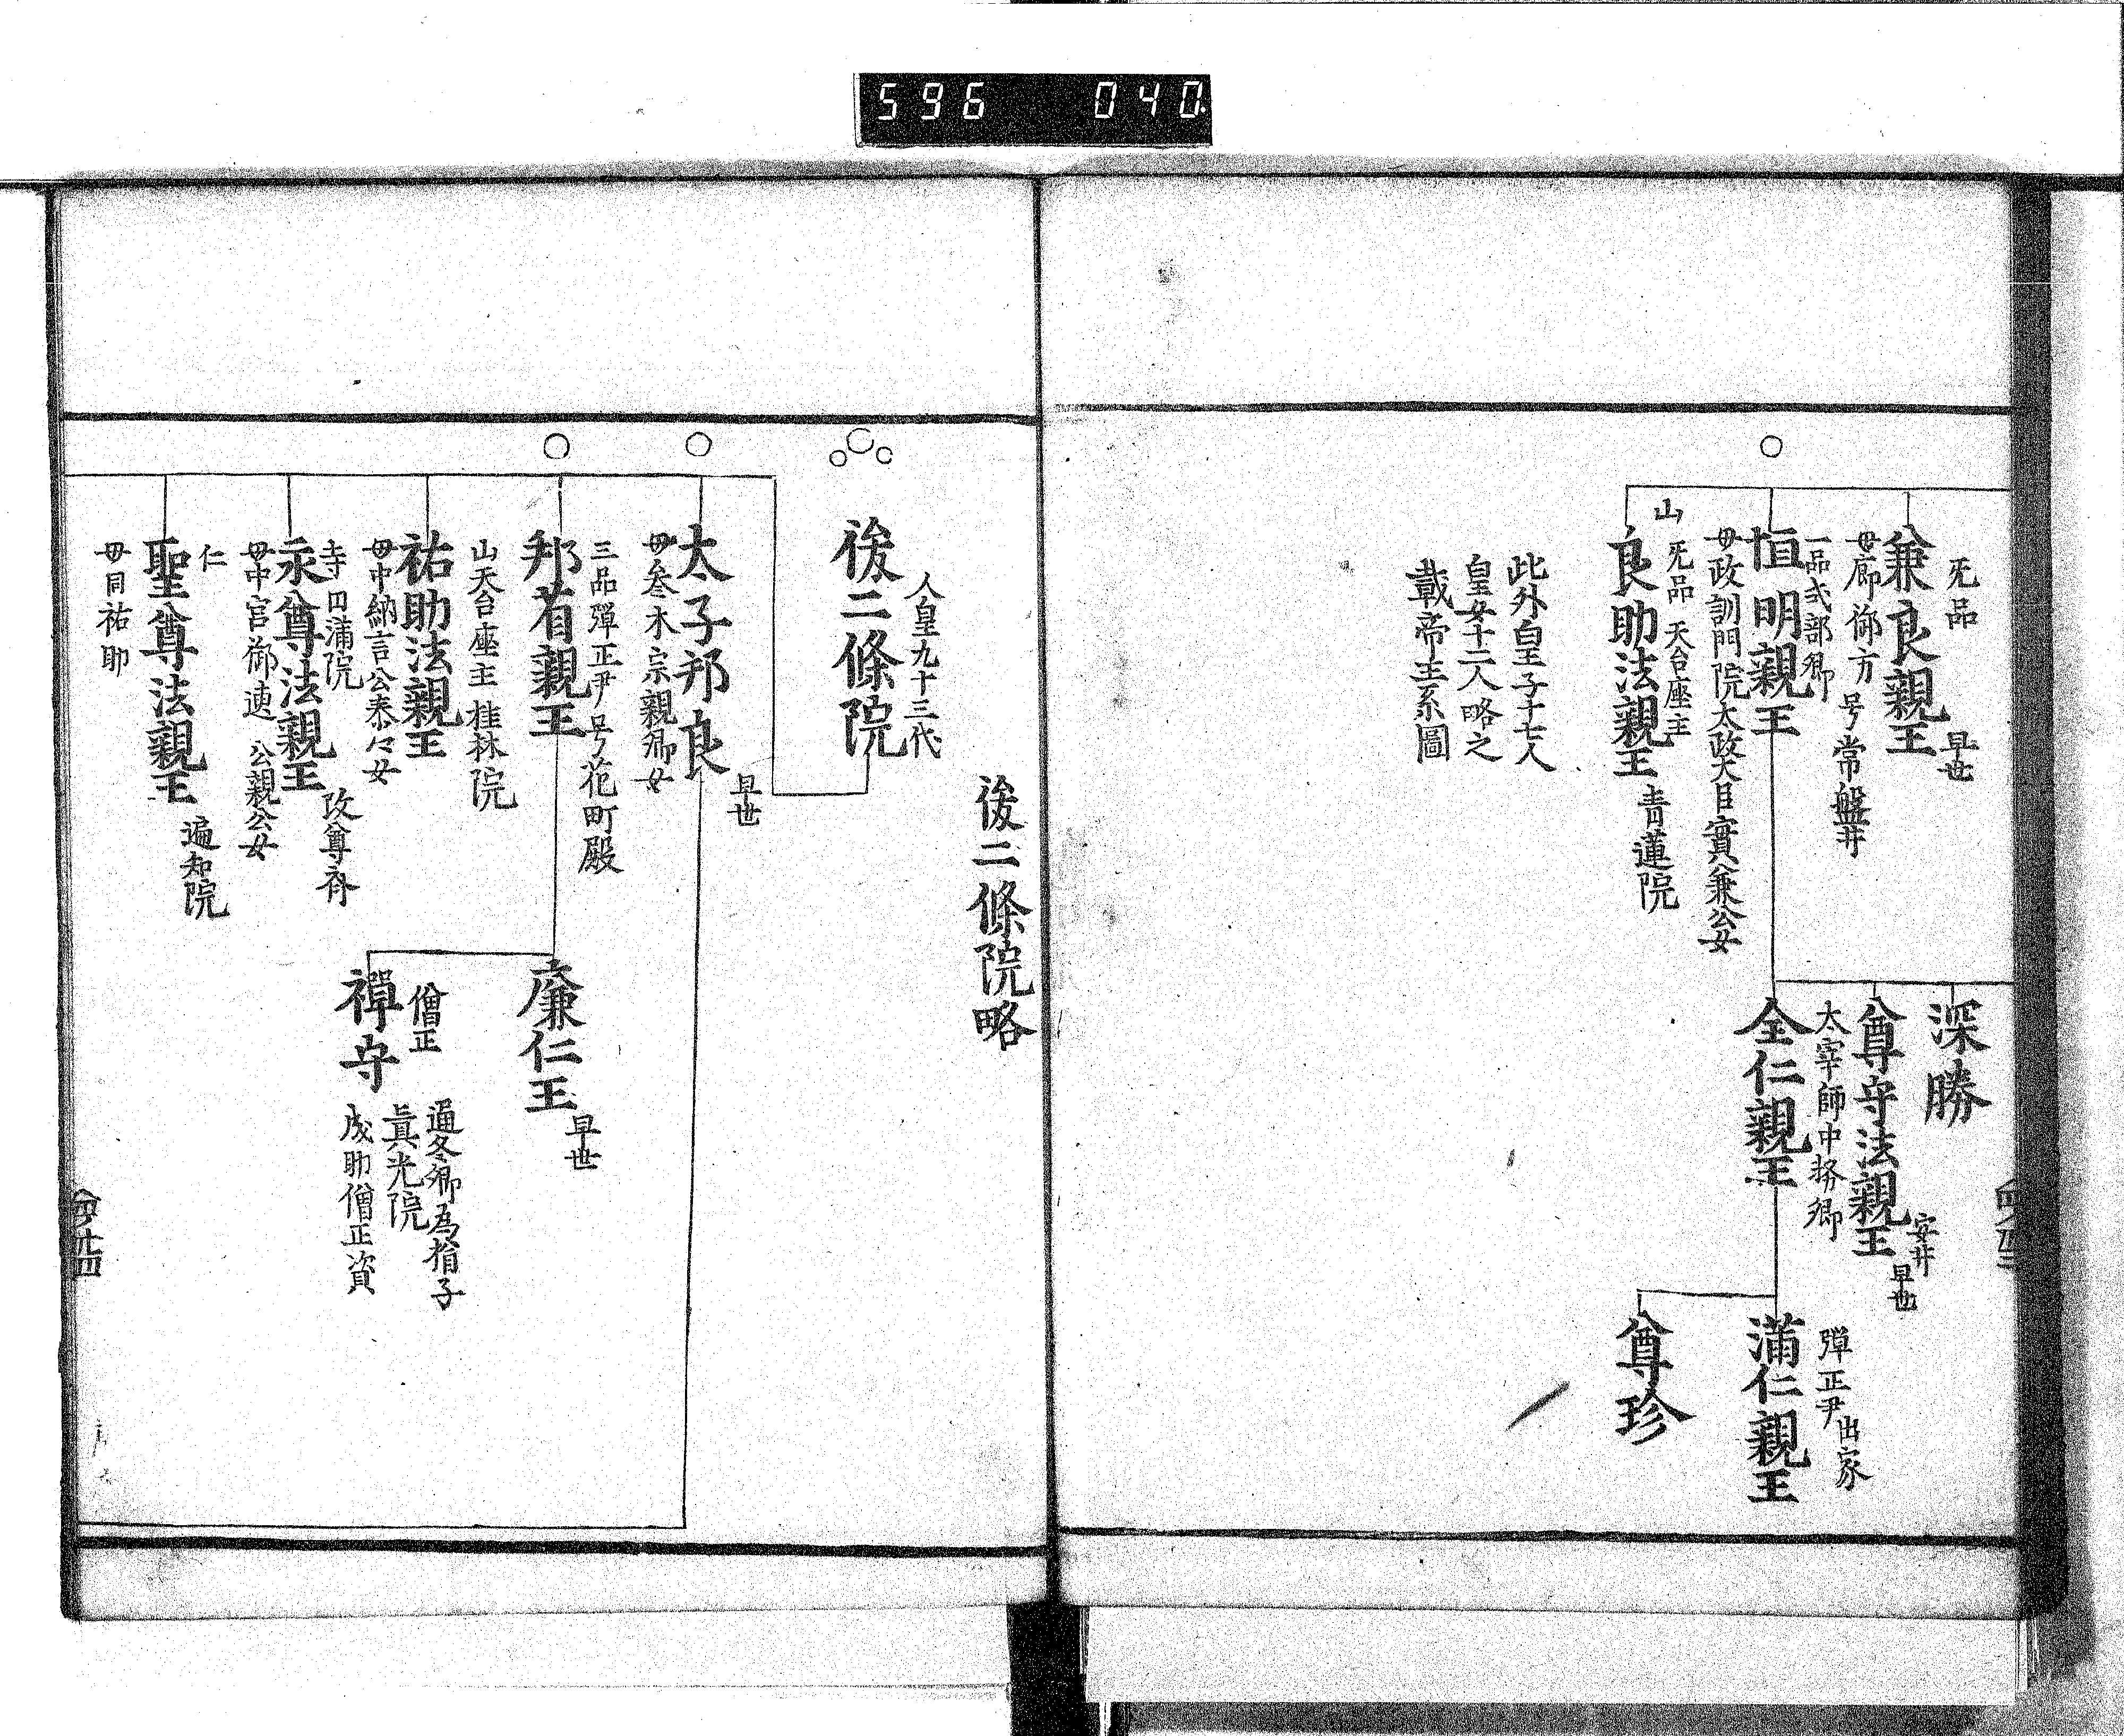 596 040
无品
兼良親王 早世
母廊御方 号常盤井
一品式部卿
恒明親王
母政訓門院太政大臣實兼公女
山 无品 天台座主
良助法親王 青蓮院
深勝
尊守法親王 安井 早世
太宰師中務卿
全仁親王
彈正尹 出家
満仁親王
尊珍
此外皇子十七人
皇女十二人略之
載帝王系圖
後二條院略
人皇九十三代
後二條院
太子邦良 早世
母叅木宗親卿女
三品彈正尹号花町殿
邦省親王
廉仁王 早世
僧正
禪守
通冬卿為猶子
眞光院
成助僧正資
山天台座主 桂林院
祐助法親王
母中納言公泰々女
寺円満院
永尊法親王 改尊斉
母中宮御連 公親公女
仁
聖尊法親王 遍知院
母同祐助